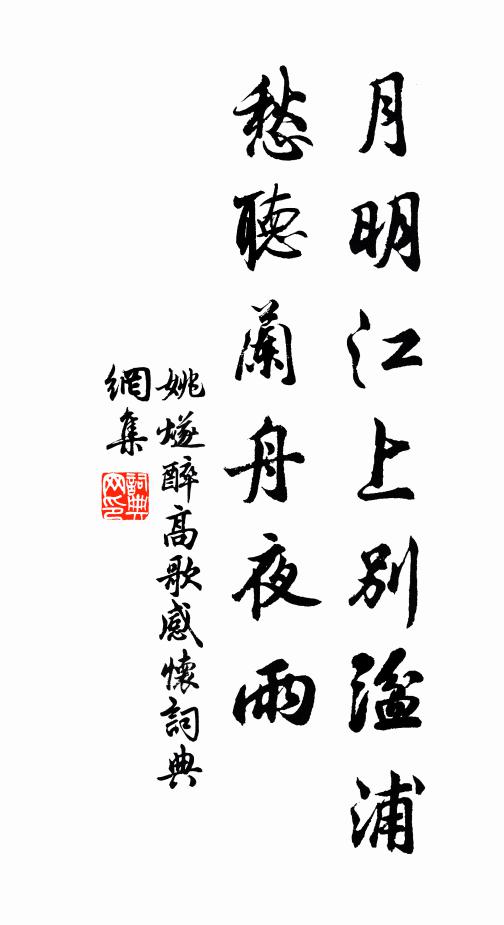 月明江上別湓浦
愁聽蘭舟夜雨
姚燧醉高歌感懷詞典
網集
詞典
网印